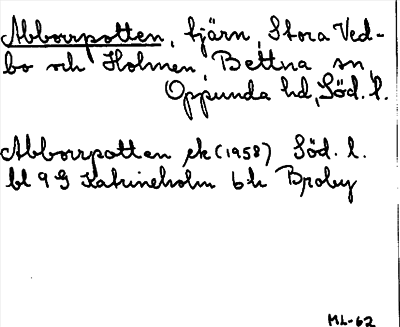 Abborrpotten, tjärn, Stora Ved-
bo och Holmen, Bettna sn,
Oppunda hd, Söd. l.
Abborrpotten ek (1958) Söd. l.
bl 9 G Katrineholm bh Broby
ML-62